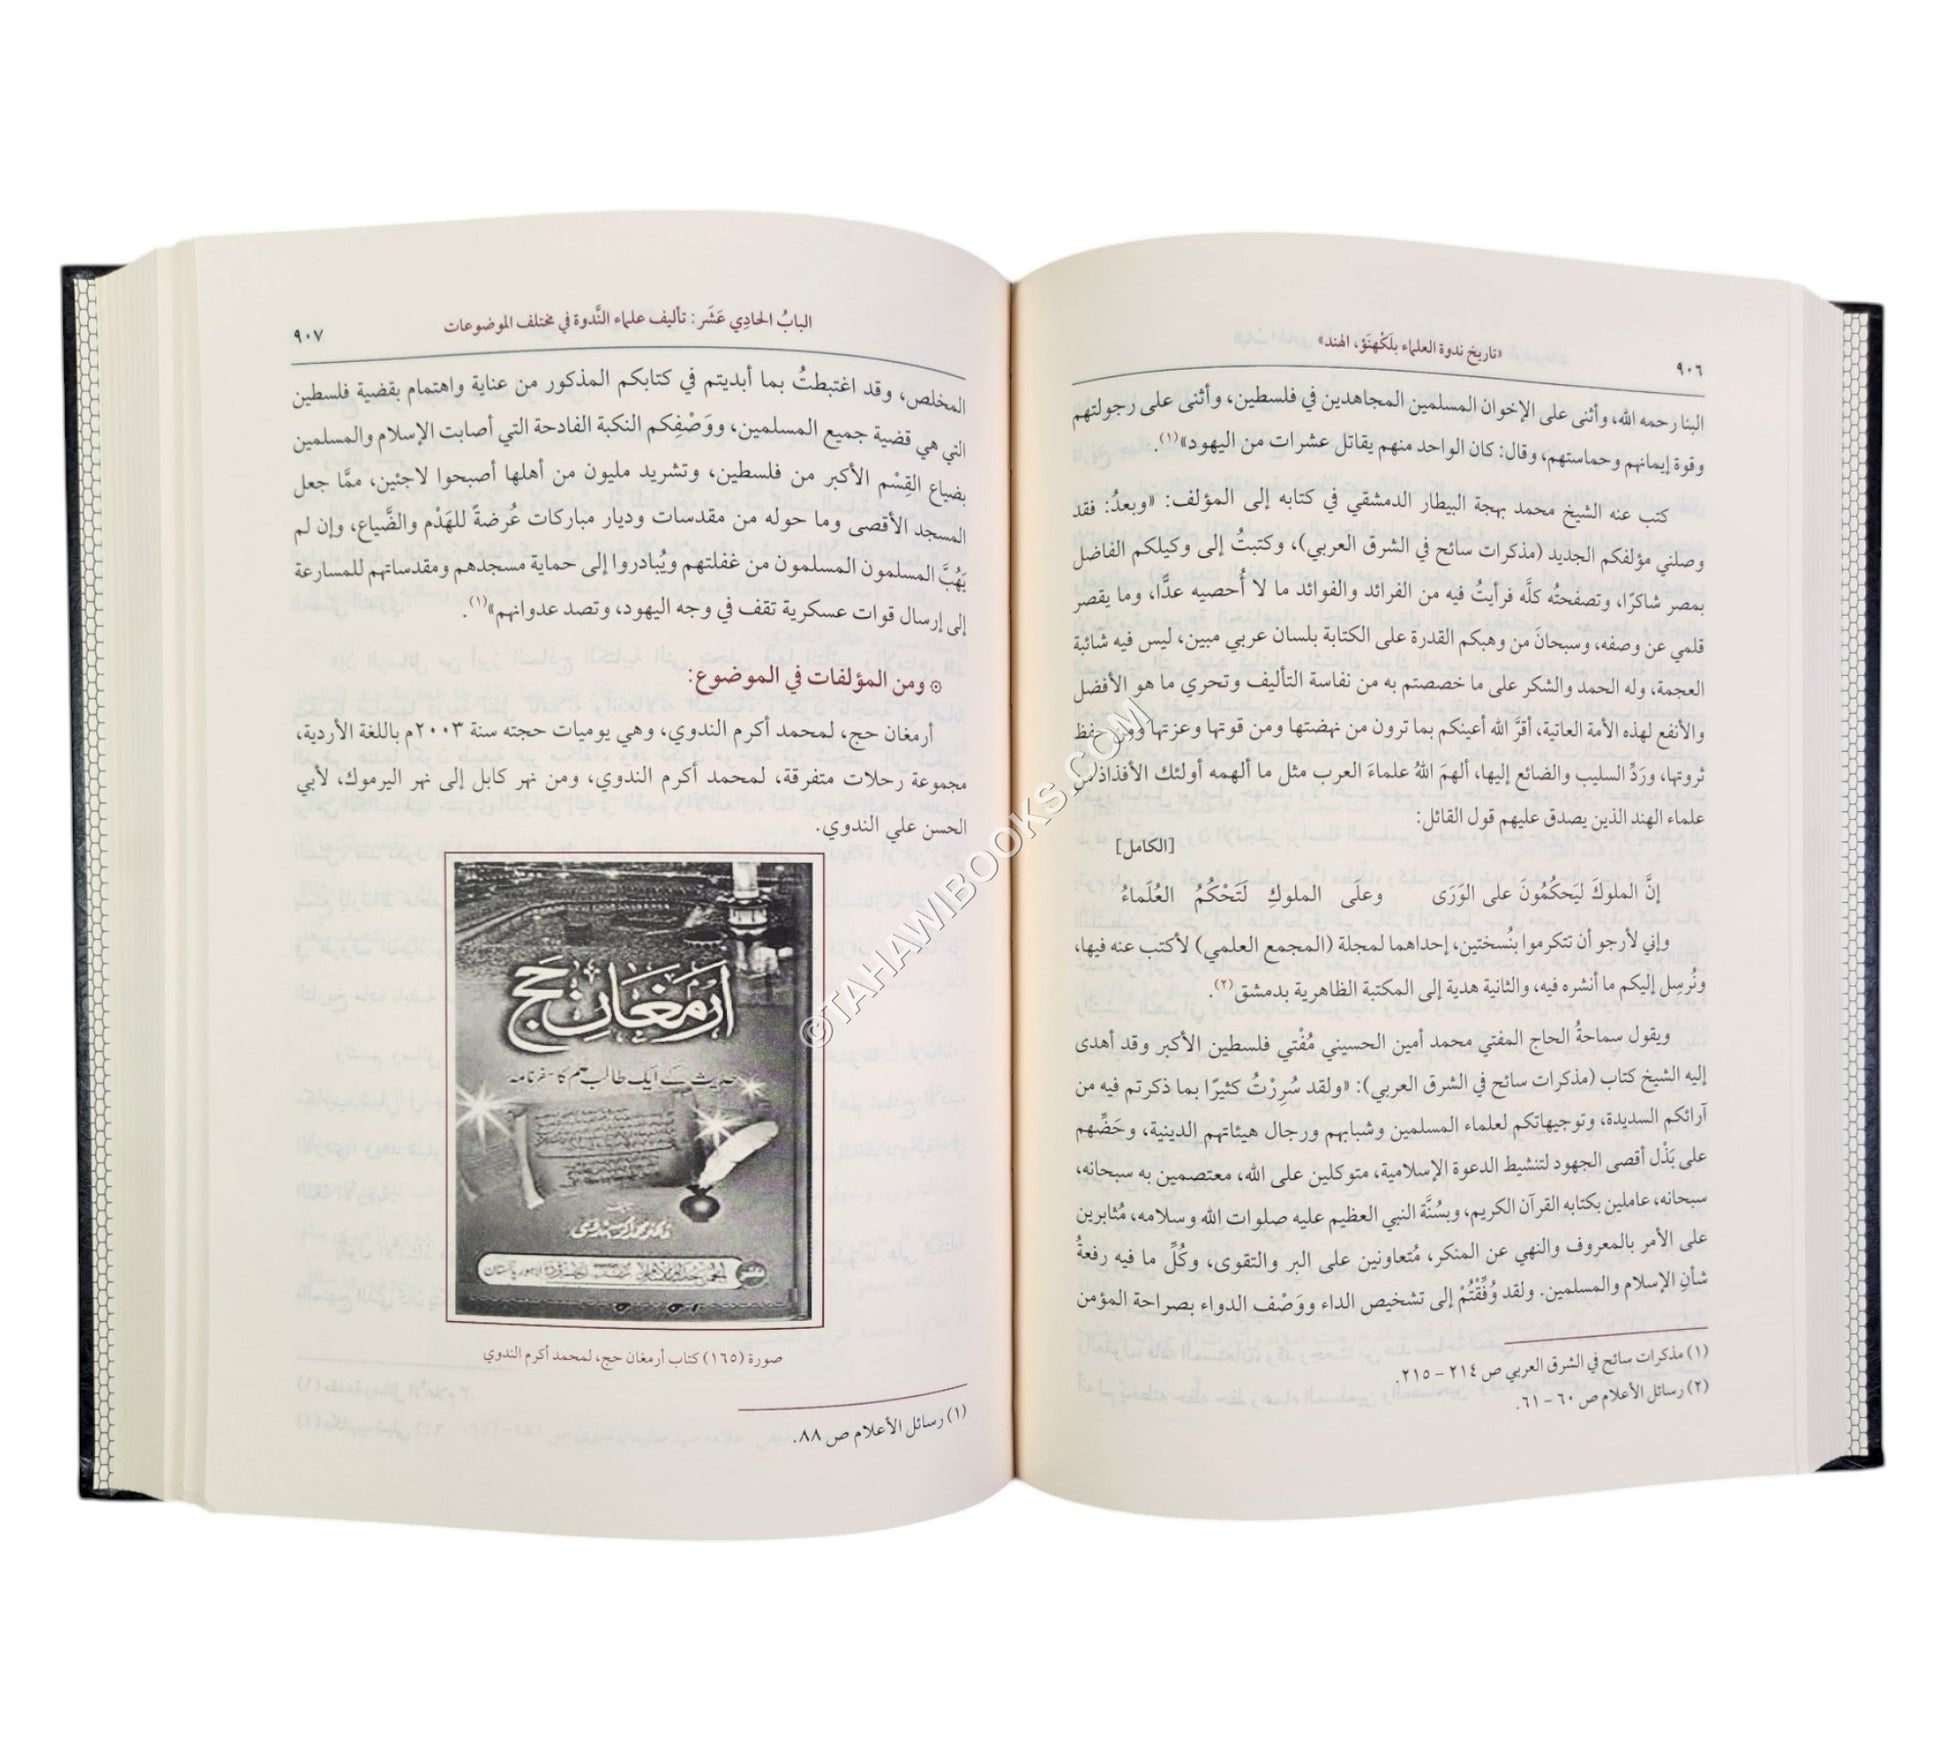 ٩٠٦
«تاريخ ندوة العلماء بلَكْهنَؤ، الهند»
البنا رحمه الله، وأثنى على الإخوان المسلمين المجاهدين في فلسطين، وأثنى على رجولتهم
وقوة إيمانهم وحماستهم، وقال: كان الواحد منهم يقاتل عشرات من اليهود»(١).
كتب عنه الشيخ محمد بهجة البيطار الدمشقي في كتابه إلى المؤلف: «وبعدُ: فقد
وصلني مؤلفكم الجديد (مذكرات سائح في الشرق العربي)، وكتبتُ إلى وكيلكم الفاضل
بمصر شاكرًا، وتصفحتُه كلَّه فرأيتُ فيه من الفرائد والفوائد ما لا أُحصيه عدًّا، وما يقصر
قلمي عن وصفه، وسبحانَ من وهبكم القدرة على الكتابة بلسان عربي مبين، ليس فيه شائبة
العجمة، وله الحمد والشكر على ما خصصتم به من نفاسة التأليف وتحري ما هو الأفضل
والأنفع لهذه الأمة العاتية، أقرَّ الله أعينكم بما ترون من نهضتها ومن قوتها وعزتها ومن حفظ
ثروتها، ورَدِّ السليب والضائع إليها، ألهمَ اللهُ علماءَ العرب مثل ما ألهمه أولئك الأفذاذ من
علماء الهند الذين يصدق عليهم قول القائل:
[الكامل]
إنَّ الملوكَ ليَحكُمُونَ على الوَرَى وعلَى الملوكِ لَتَحْكُمُ العُلَماءُ
وإني لأرجو أن تتكرموا بنُسختين، إحداهما لمجلة (المجمع العلمي) لأكتب عنه فيها،
ونُرسِل إليكم ما أنشره فيه، والثانية هدية إلى المكتبة الظاهرية بدمشق(٢).
ويقول سماحةُ الحاج المفتي محمد أمين الحسيني مُفْتي فلسطين الأكبر وقد أهدى
إليه الشيخ كتاب (مذكرات سائح في الشرق العربي): «ولقد سُرِرْتُ كثيرًا بما ذكرتم فيه من
آرائكم السديدة، وتوجيهاتكم لعلماء المسلمين وشبابهم ورجال هيئاتهم الدينية، وحَضِّهم
على بَذْل أقصى الجهود لتنشيط الدعوة الإسلامية، متوكلين على الله، معتصمين به سبحانه،
سبحانه، عاملين بكتابه القرآن الكريم، وبسُنَّة النبي العظيم عليه صلوات الله وسلامه، مُثابرين
على الأمر بالمعروف والنهي عن المنكر، مُتعاونين على البر والتقوى، وكُلِّ ما فيه رفعةُ
شأنِ الإسلام والمسلمين. ولقد وُفِّقْتُمْ إلى تشخيص الداء ووَصْف الدواء بصراحة المؤمن
(١) مذكرات سائح في الشرق العربي ص ٢١٤ – ٢١٥.
(٢) رسائل الأعلام ص ٦٠ – ٦١.
البابُ الحادِي عَشَر: تأليف علماء النَّدوة في مختلف الموضوعات
٩٠٧
المخلص، وقد اغتبطتُ بما أبديتم في كتابكم المذكور من عناية واهتمام بقضية فلسطين
التي هي قضية جميع المسلمين، ووَصْفِكم النكبة الفادحة التي أصابت الإسلام والمسلمين
بضياع القِسْم الأكبر من فلسطين، وتشريد مليون من أهلها أصبحوا لاجئين، ممَّا جعل
المسجد الأقصى وما حوله من مقدسات وديار مباركات عُرضةً للهَدْم والضَّياع، وإن لم
يَهُبَّ المسلمون المسلمون من غفلتهم ويُبادروا إلى حماية مسجدهم ومقدساتهم للمسارعة
إلى إرسال قوات عسكرية تقف في وجه اليهود، وتصد عدوانهم»(١).
۞ ومن المؤلفات في الموضوع:
أرمغان حج، لمحمد أكرم الندوي، وهي يوميات حجته سنة ٢٠٠٣م باللغة الأردية،
مجموعة رحلات متفرقة، لمحمد أكرم الندوي، ومن نهر كابل إلى نهر اليرموك، لأبي
الحسن علي الندوي.
أرمغانِ حج
حدیث کے ایک طالب علم کا سفرنامہ
صورة (١٦٥) كتاب أرمغان حج، لمحمد أكرم الندوي
(١) رسائل الأعلام ص ٨٨.
©TAHAWIBOOKS.COM